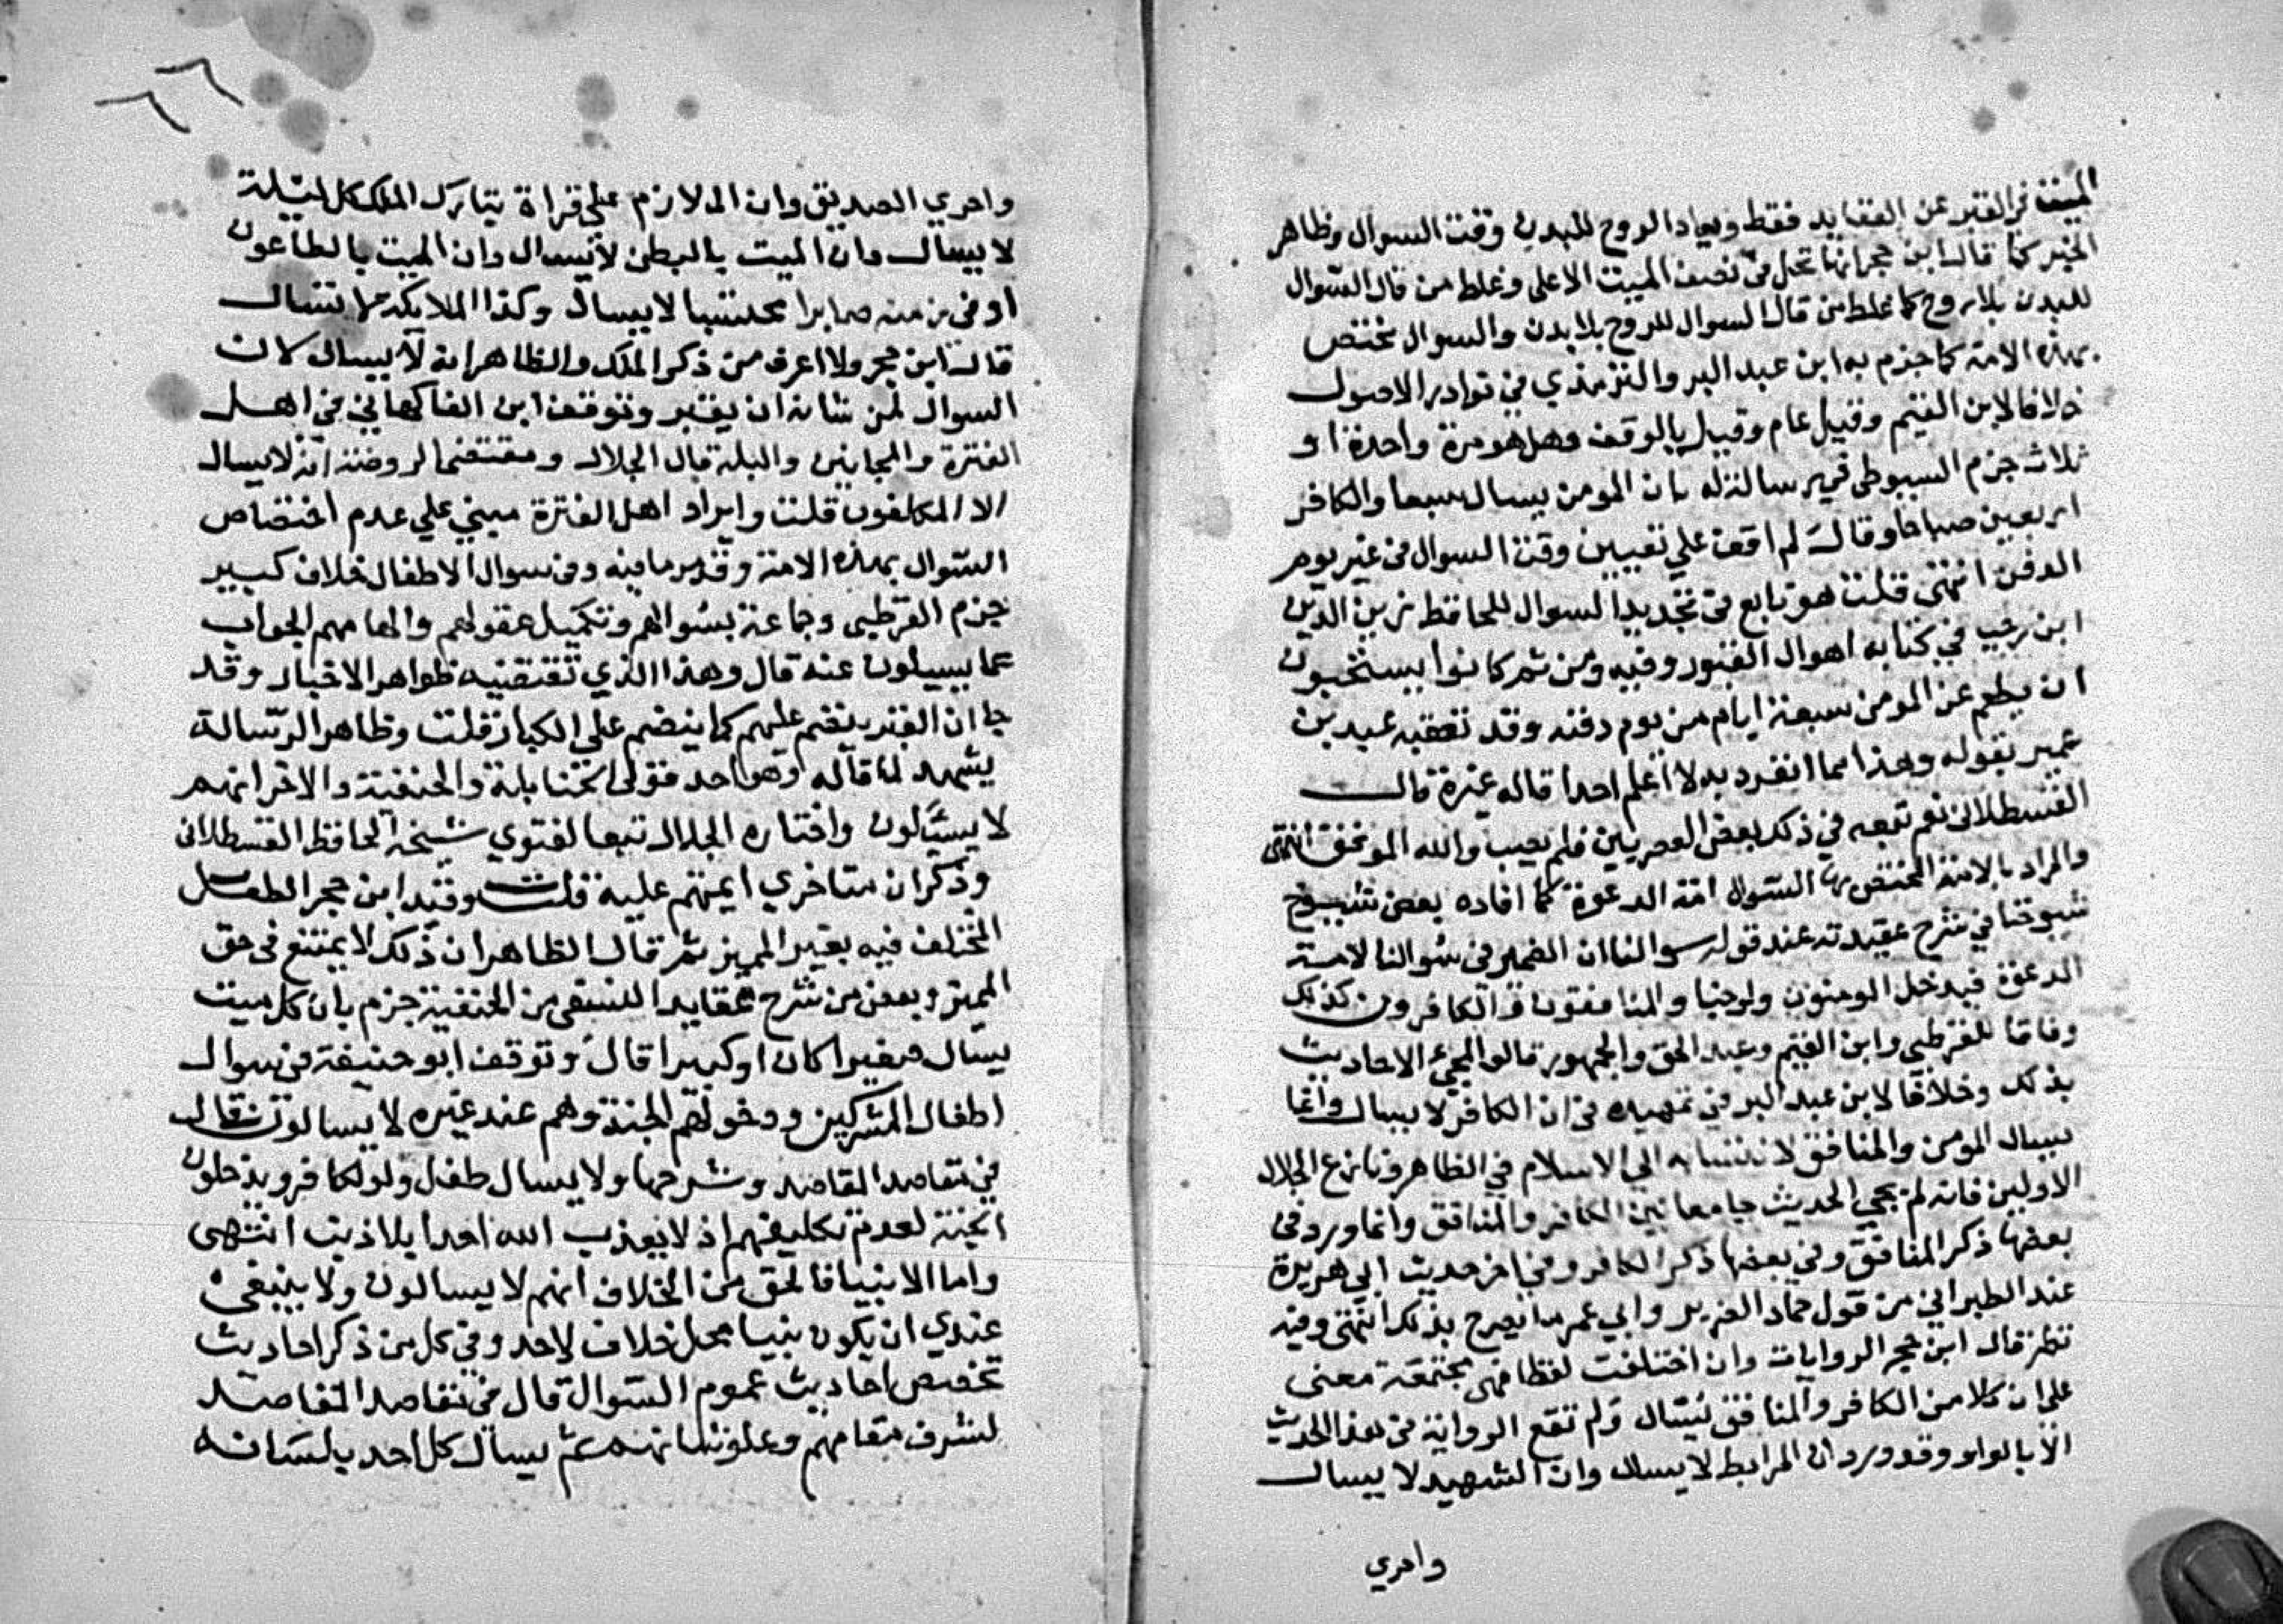 الميت في القبر عن العقايد فقط ويعاد الروح للبدن وقت السوال وظاهر
الخبر كما قال ابن حجر انها تحل في نصف الميت الاعلى وغلط من قال السوال
للبدن بلا روح كما غلط من قال السوال للروح بلا بدن والسوال مختص
بهذه الامة كما جزم به ابن عبد البر والترمذي في نوادر الاصول
خلافا لابن القيم وقيل عام وقيل بالوقف وهل هو مرة واحدة او
ثلاث جزم السيوطي في رسالة له بان المومن يسال سبعا والكافر
اربعين صباحا وقال لم اقف على تعيين وقت السوال في غير يوم
الدفن انتهى قلت هو تابع في تجديد السوال للحافظ زين الدين
ابن رجب في كتابه اهوال القبور وفيه ومن ثم كانوا يستحبون
ان يطعم عن المومن سبعة ايام من يوم دفنه وقد تعقبه عبيد بن
عمير بقوله وهذا مما انفرد به لا اعلم احدا قاله غيره قال
القسطلاني نعم تبعه في ذلك بعض العصريين فلم يصب والله الموفق انتهى
والمراد بالامة المختص بها السوال امة الدعوة كما افاده بعض شيوخ
شيوخنا في شرح عقيدته عند قوله سوالنا ان الضمير في سوالنا لامة
الدعوة فيدخل المومنون ولو جنا والمنافقون والكافرون كذلك
وفاقا للقرطبي وابن القيم وعبد الحق والجمهور قالوا لمجيء الاحاديث
بذلك وخلافا لابن عبد البر في تمهيده في ان الكافر لا يسال وانما
يسال المومن والمنافق لانتسابه الى الاسلام في الظاهر ونازع الجلال
الاولين فانه لم يجي الحديث جامعا بين الكافر والمنافق وانما ورد في
بعضها ذكر المنافق وفي بعضها ذكر الكافر وفي اخر حديث ابي هريرة
عند الطبراني من قول حماد الضرير وابي عمر ما يصرح بذلك انتهى وفيه
نظر قال ابن حجر الروايات وان اختلفت لفظا فهي مجتمعة معنى
على ان كلا من الكافر والمنافق يسال ولم تقع الرواية في هذا الحديث
الا بالواو وقد ورد ان المرابط لا يسال وان الشهيد لا يسال
واحري
٦٦
واحري الصديق وان الملازم على قراة تبارك الملك كل ليلة
لا يسال وان الميت بالبطن لا يسال وان الميت بالطاعون
او في زمنه صابرا محتسبا لا يسال وكذا الملايكة لا تسال
قال ابن حجر ولا اعرف من ذكر الملك والظاهر انه لا يسال لان
السوال لمن شانه ان يقبر وتوقف ابن الفاكهاني في اهل
الفترة والمجانين والبله قال الجلال ومقتضى الروضة انه لا يسال
الا المكلفون قلت وايراد اهل الفترة مبني على عدم اختصاص
السوال بهذه الامة وقد مر ما فيه وفي سوال الاطفال خلاف كبير
جزم القرطبي وجماعة بسوالهم وتكميل عقولهم والهامهم الجواب
عما يسيلون عنه قال وهذا الذي تقتضيه ظواهر الاخبار وقد
جا ان القبر ينضم عليهم كما ينضم على الكبار قلت وظاهر الرسالة
يشهد لما قاله وهو احد قولي الحنابلة والحنفية والاخر انهم
لا يسيلون واختاره الجلال تبعا لفتوي شيخه الحافظ القسطلاني
وذكر ان متاخري ايمتهم عليه قلت وقيد ابن حجر الطفل
المختلف فيه بغير المميز ثم قال الظاهر ان ذلك لا يمتنع في حق
المميز وبعض من شرح عقايد النسفي من الحنفية جزم بان كل ميت
يسال صغيرا كان او كبيرا قال وتوقف ابو حنيفة في سوال
اطفال المشركين ودخولهم الجنة وهم عند غيره لا يسالون قال
في مقاصد المقاصد وشرحها ولا يسال طفل ولو لكافر ويدخلون
الجنة لعدم تكليفهم اذ لا يعذب الله احدا بلا ذنب انتهى
واما الانبيا فالحق من الخلاف انهم لا يسالون ولا ينبغي
عندي ان يكون نبينا محل خلاف لاحد وفي كل من ذكر احاديث
تخصص احاديث عموم السوال قال في مقاصد المقاصد
لشرف مقامهم وعلو شانهم ثم يسال كل احد بلسانه